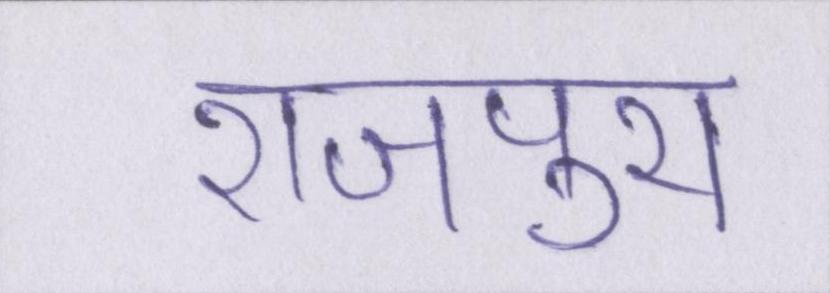 राजपुरा